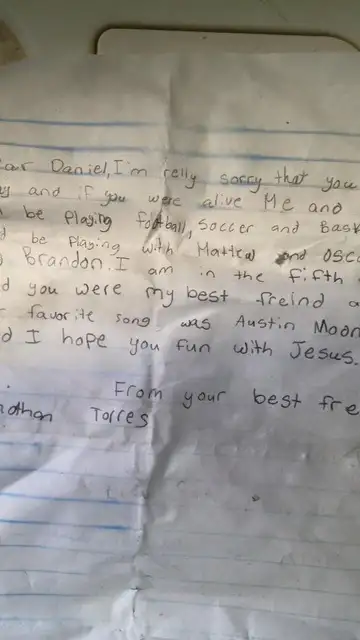 ear Daniel, I'm relly sorry that you
and if you were alive Me and
be Playing football, Soccer and Bask
d be Playing with Mattew and Osc
Brandon. I am in the fifth
d you were my best freind a
favorite song was Austin Moon
d I hope you fun with Jesus.
From your best fre
nathan Torres